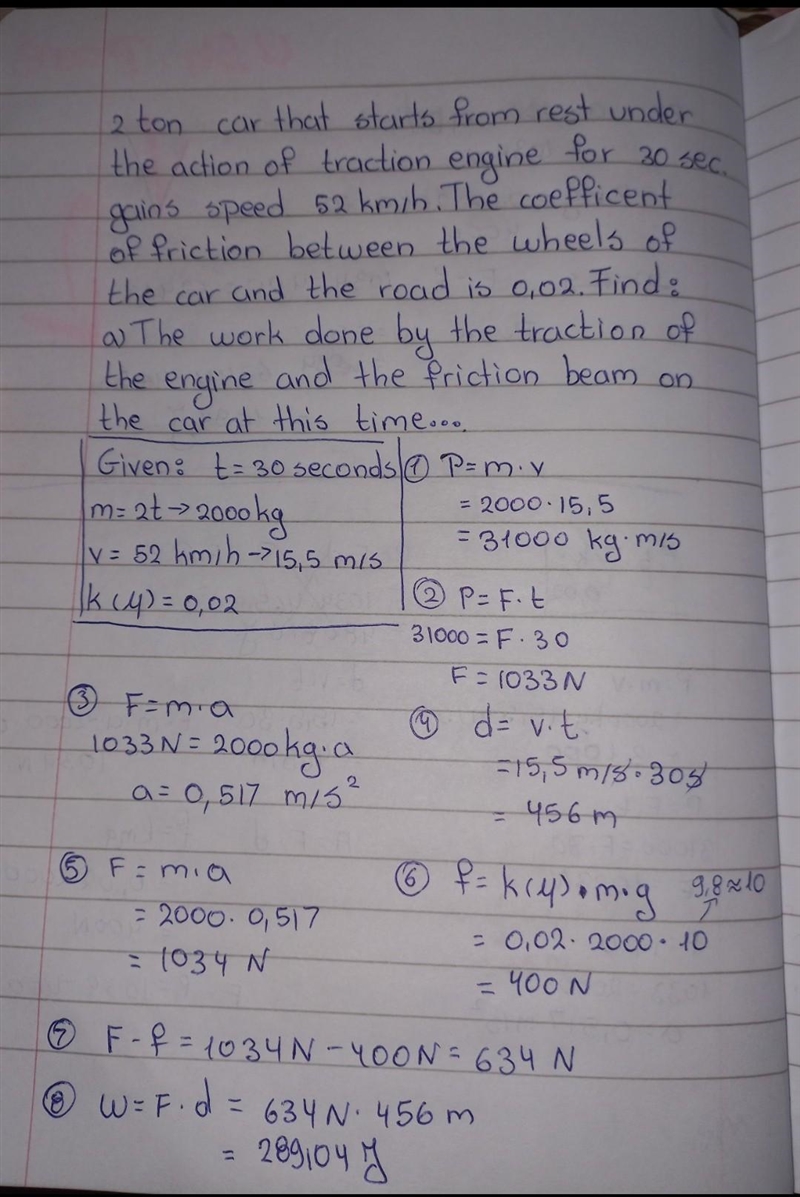 2 ton car that starts from rest under
the action of traction engine for 30 sec.
gains speed 52 km/h. The coefficent
of friction between the wheels of
the car and the road is 0,02. Find:
a) The work done by the traction of
the engine and the friction beam on
the car at this time...
Given: t = 30 seconds
m = 2t → 2000 kg
v = 52 km/h → 15,5 m/s
k(μ) = 0,02
① P = m·v
= 2000·15,5
= 31000 kg·m/s
② P = F·t
31000 = F·30
F = 1033 N
③ F = m·a
1033 N = 2000 kg·a
a = 0,517 m/s²
④ d = v·t
= 15,5 m/s·30s
= 456 m
⑤ F = m·a
= 2000·0,517
= 1034 N
⑥ f = k(μ)·m·g 9,8≈10
= 0,02·2000·10
= 400 N
⑦ F - f = 1034 N - 400 N = 634 N
⑧ W = F·d = 634 N·456 m
= 289,104 J